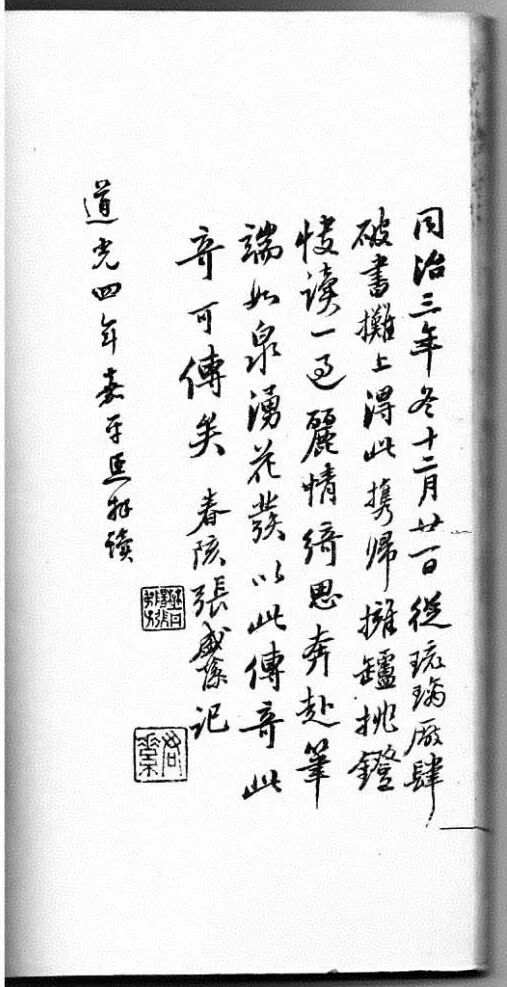 同治三年冬十二月廿一日從琉璃厰肆
破書攤上得此携歸擁罏挑鐙
快讀一過麗情綺思奔赴筆
端如泉湧花發以此傳奇此
奇可傳矣 春陔張盛藻记
道光四年嘉平 讀